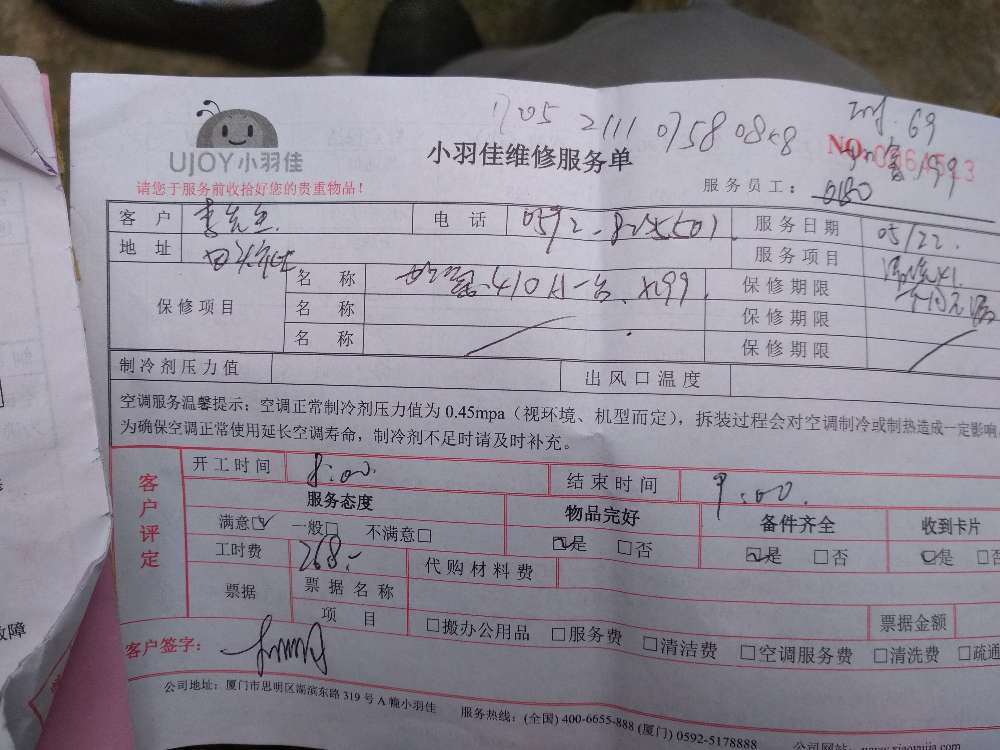 1705 2111 0758 0808
69
199
UJOY小羽佳
小羽佳维修服务单
NO.
请您于服务前收拾好您的贵重物品！
服务员工： 0180
客 户 李先生 电 话 服务日期 05/22.
地 址 服务项目
保修项目 名 称 410A 一台 x199 保修期限
名 称 保修期限
名 称 保修期限
制冷剂压力值 出风口温度
空调服务温馨提示：空调正常制冷剂压力值为 0.45mpa（视环境、机型而定），拆装过程会对空调制冷或制热造成一定影响
为确保空调正常使用延长空调寿命，制冷剂不足时请及时补充。
客户评定
开工时间 8:00 结束时间 9:00.
服务态度 物品完好 备件齐全 收到卡片
满意☑ 一般□ 不满意□ ☑是 □否 ☑是 □否 ☑是 □否
工时费 268.- 代购材料费
票据 票据名称
项 目 票据金额
□搬办公用品 □服务费 □清洁费 □空调服务费 □清洗费 □疏通
客户签字：
公司地址：厦门市思明区湖滨东路 319 号 A 幢小羽佳 服务热线：(全国) 400-6655-888 (厦门) 0592-5178888
公司网站：www.xiaoyujia.com
故障